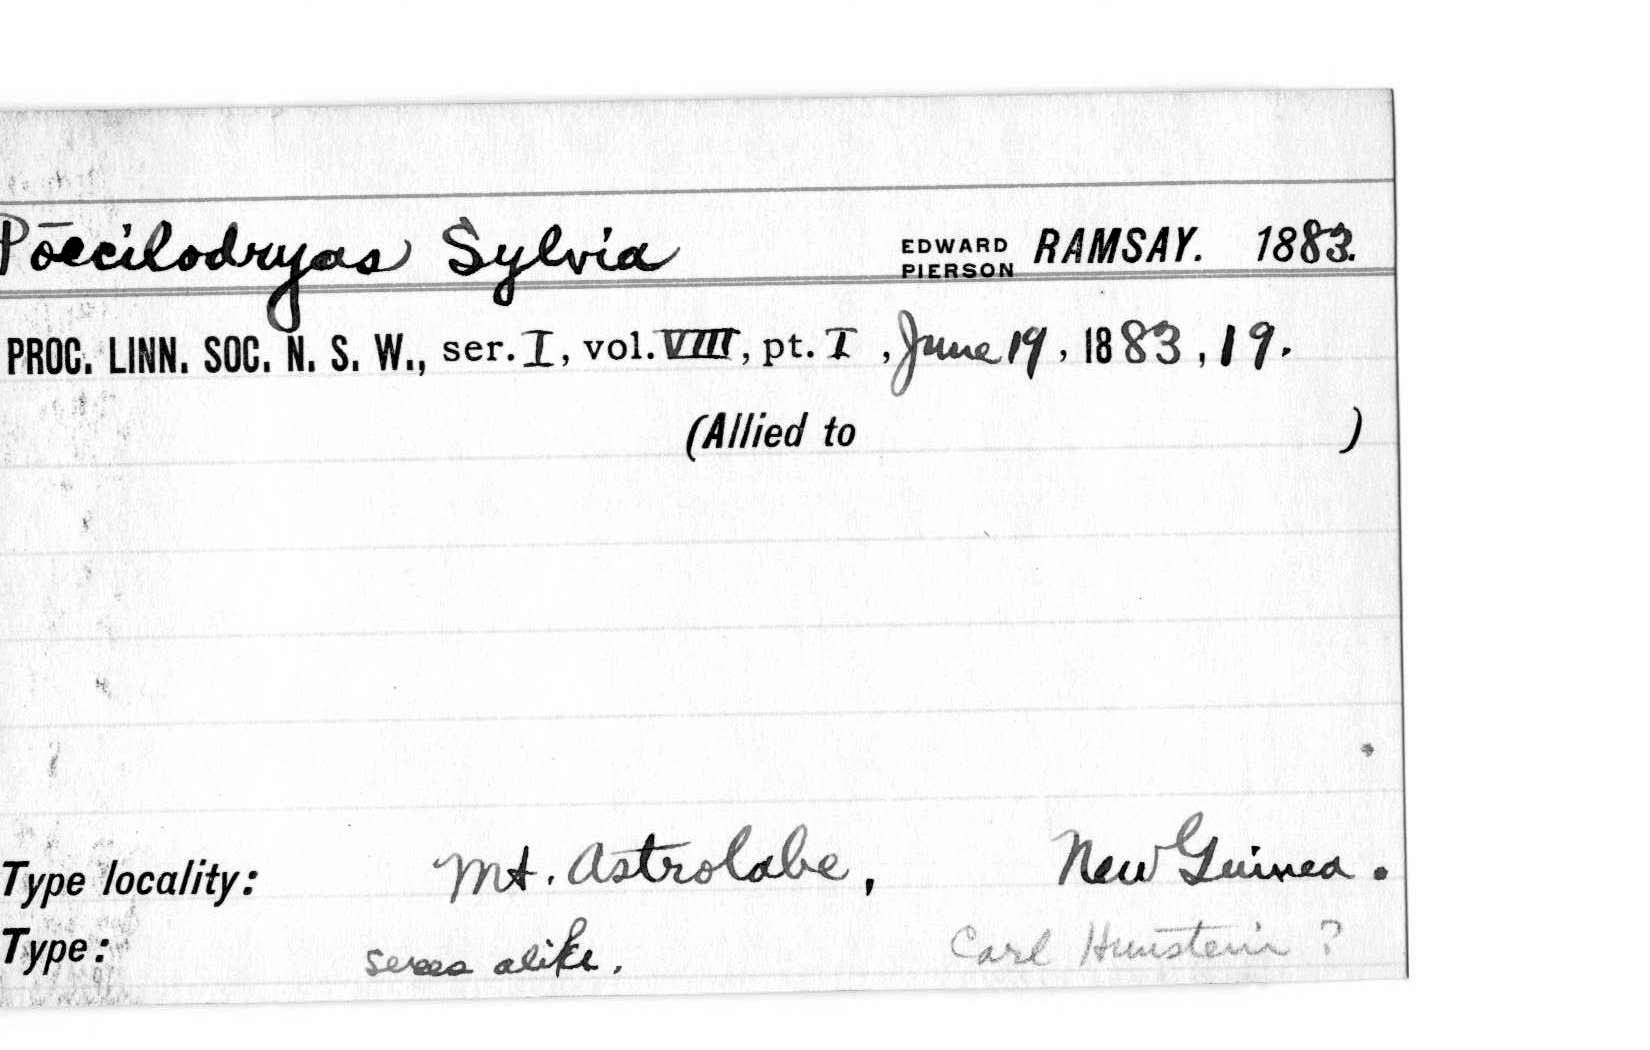 Poecilodryas Sylvia EDWARD PIERSON RAMSAY. 1883.
PROC. LINN. SOC. N. S. W., ser. I, vol. VIII, pt. I, June 19, 1883, 19.
(Allied to )
Type locality: Mt. Astrolabe, New Guinea.
Type: sexes alike. Carl Hunstein ?